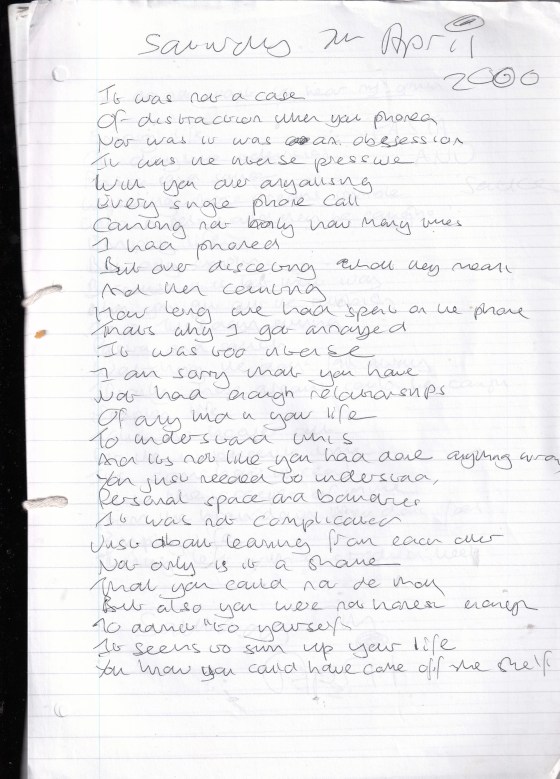 Saturday April
2000
It was not a case
Of distraction when you phoned
Nor was it was an obsession
It was the intense pressure
With you over analising
Every single phone call
Counting not only how many times
I had phoned
But over disecting what they mean
And then counting
How long we had spent on the phone
Thats why I got annoyed
It was too intense
I am sorry that you have
Not had enough relationships
Of any kind in your life
To understand this
And its not like you had done anything wrong
You just needed to understand,
Personal space and boundries
It was not complicated
Just about learning from each other
Not only is it a shame
That you could not do that
But also you were not honest enough
To admit "to yourself
It seems to sum up your life
You know you could have come off the shelf